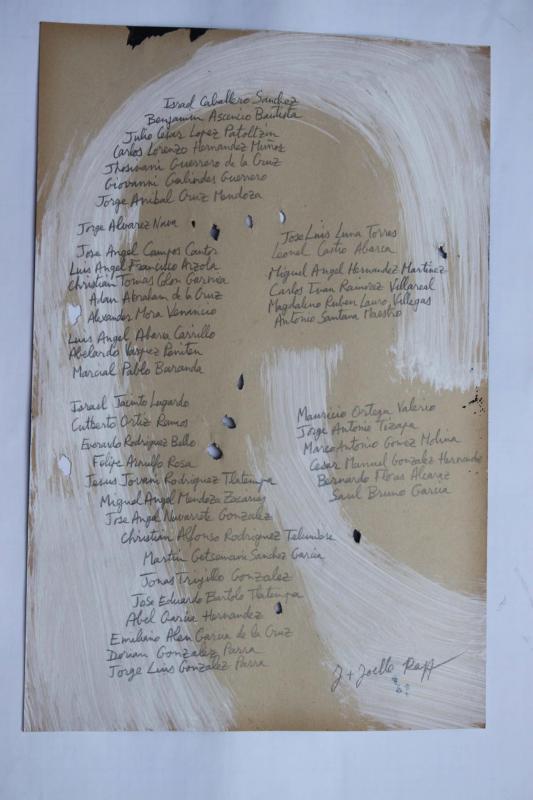 Israel Caballero Sanchez
Benjamin Ascencio Bautista
Julio Cesar Lopez Patoltzin
Carlos Lorenzo Hernandez Muñoz
Jhosivani Guerrero de la Cruz
Giovanni Galindes Guerrero
Jorge Anibal Cruz Mendoza
Jorge Alvarez Nava
Jose Angel Campos Cantor
Luis Angel Francisco Arzola
Christian Tomas Colon Garnica
Adan Abraham de la Cruz
Alexander Mora Venancio
Luis Angel Abarca Carrillo
Abelardo Vazquez Peniten
Marcial Pablo Baranda
Jose Luis Luna Torres
Leonel Castro Abarca
Miguel Angel Hernandez Martinez
Carlos Ivan Ramirez Villareal
Magdalino Ruben Lauro Villegas
Antonio Santana Maestro
Israel Jacinto Lugardo
Cutberto Ortiz Ramos
Everardo Rodriguez Bello
Felipe Arnulfo Rosa
Jesus Jovani Rodriguez Tlatempa
Miguel Angel Mendoza Zacarias
Jose Angel Navarrete Gonzalez
Christian Alfonso Rodriguez Telumbre
Martin Getsemani Sanchez Garcia
Jonas Trujillo Gonzalez
Jose Eduardo Bartolo Tlatempa
Abel Garcia Hernandez
Emiliano Alen Garcia de la Cruz
Dorian Gonzalez Parra
Jorge Luis Gonzalez Parra
Mauricio Ortega Valerio
Jorge Antonio Tizapa
Marco Antonio Gomez Molina
Cesar Manuel Gonzalez Hernandez
Bernardo Flores Alcaraz
Saul Bruno Garcia
J + Joelle Rapp